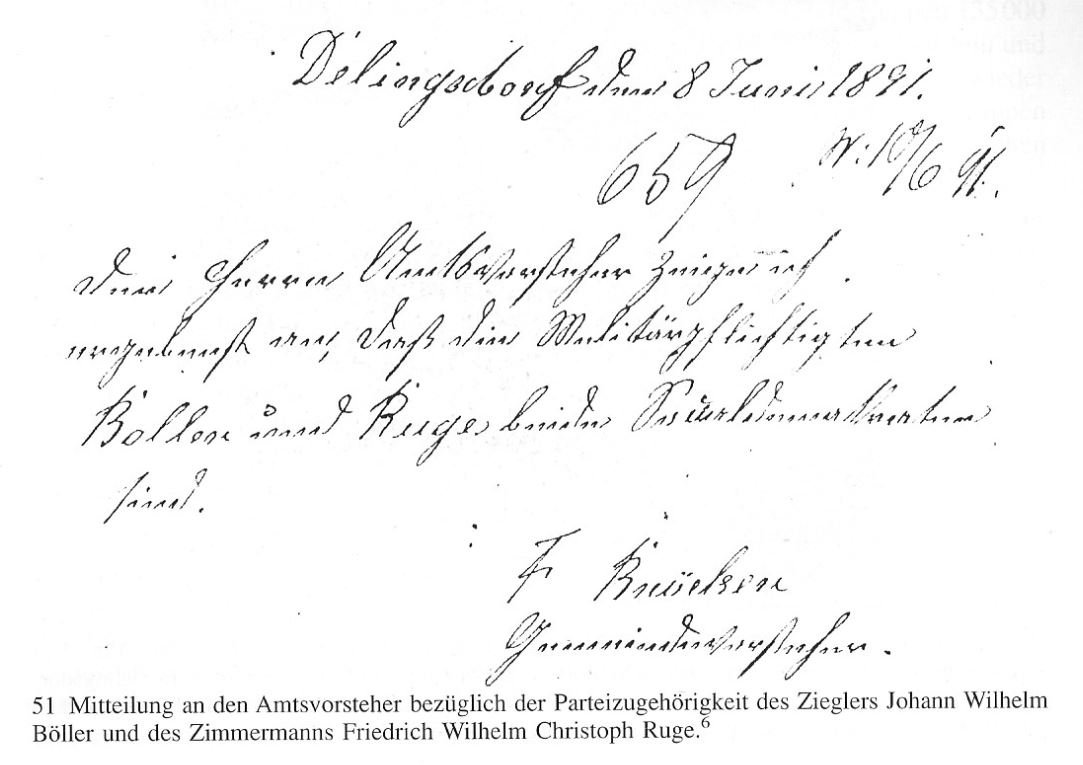 Delingsdorf den 8 Juni 1891.
659 W: 10/6 91.
Dem Herrn Amtsvorsteher zeige ich
ergebenst an, daß die Militärpflichtigen
Böller und Ruge beide Socialdemokraten
sind.
F
Gemeindevorsteher.
51 Mitteilung an den Amtsvorsteher bezüglich der Parteizugehörigkeit des Zieglers Johann Wilhelm
Böller und des Zimmermanns Friedrich Wilhelm Christoph Ruge.6